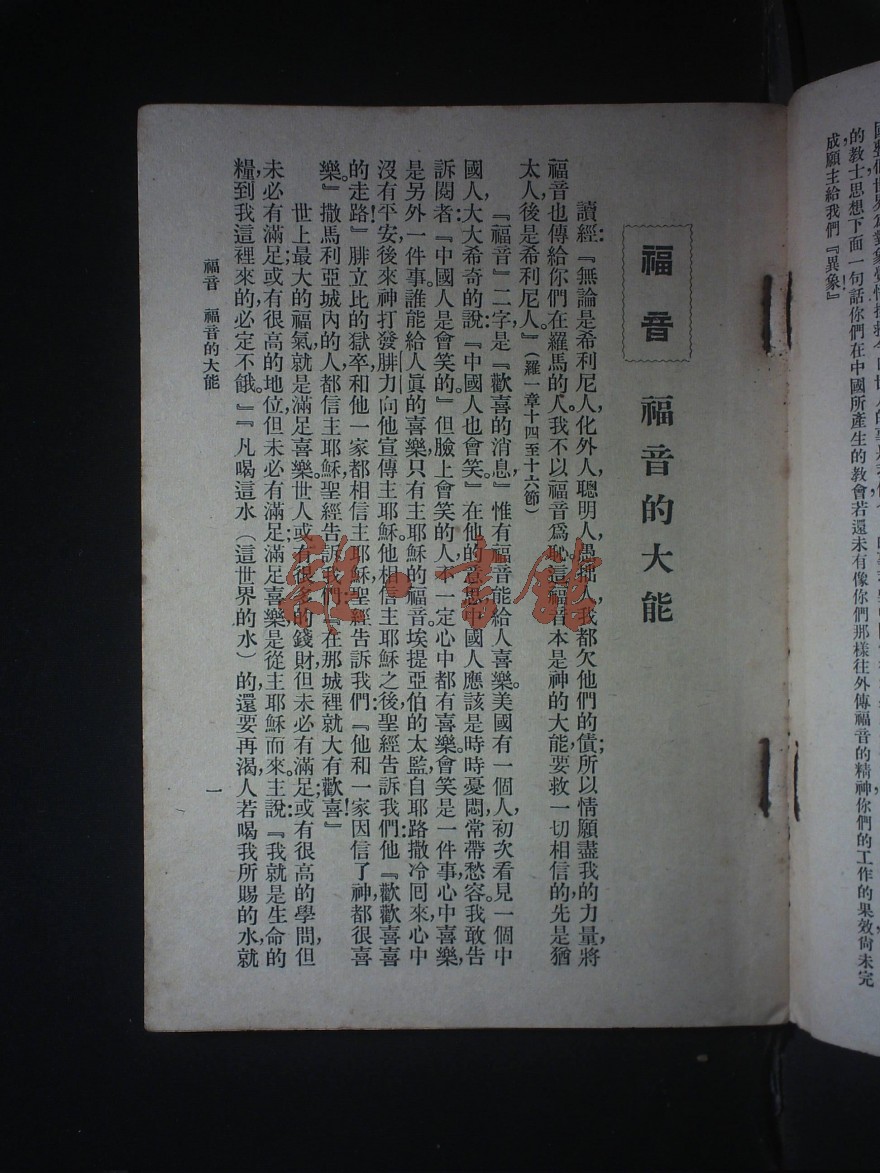 國
的教士思想下面一句話你們在中國所產生的教會若還未有像你們那樣往外傳福音的精神，你們的工作的果效尙未完
成願主給我們『異象』！
福音
福音的大能
讀經：『無論是希利尼人，化外人，聰明人，愚拙人，我都欠他們的債；所以情願盡我的力量，將
福音也傳給你們在羅馬的人。我不以福音爲恥；這福音本是神的大能，要救一切相信的，先是猶
太人，後是希利尼人。』（羅一章十四至十六節）
『福音』二字，是『歡喜的消息』惟有福音能給人喜樂。美國有一個人，初次看見一個中
國人大大希奇的說：『中國人也會笑。』在他的意思中國人應該是時時憂悶，常帶愁容。我敢告
訴閱者：『中國人是會笑的。』但臉上會笑的人，不一定心中都有喜樂。會笑是一件事，心中喜樂，
是另外一件事。誰能給人眞的喜樂，只有主耶穌的福音。埃提亞伯的太監，自耶路撒冷回來，心中
沒有平安，後來神打發腓力向他宣傳主耶穌。他相信主耶穌之後，聖經告訴我們：他『歡歡喜喜
的走路！』腓立比的獄卒，和他一家都相信主耶穌，聖經告訴我們：『他和一家，因信了神，都很喜
樂。』撒馬利亞城內的人，都信主耶穌，聖經告訴我們：『在那城裡，就大有歡喜！』
世上最大的福氣，就是滿足喜樂。世人或有很多的錢財，但未必有滿足；或有很高的學問，但
未必有滿足；或有很高的地位，但未必有滿足；滿足喜樂是從主耶穌而來。主說：『我就是生命的
糧，到我這裡來的，必定不餓。』『凡喝這水（這世界的水）的，還要再渴，人若喝我所賜的水，就
福音　福音的大能
一